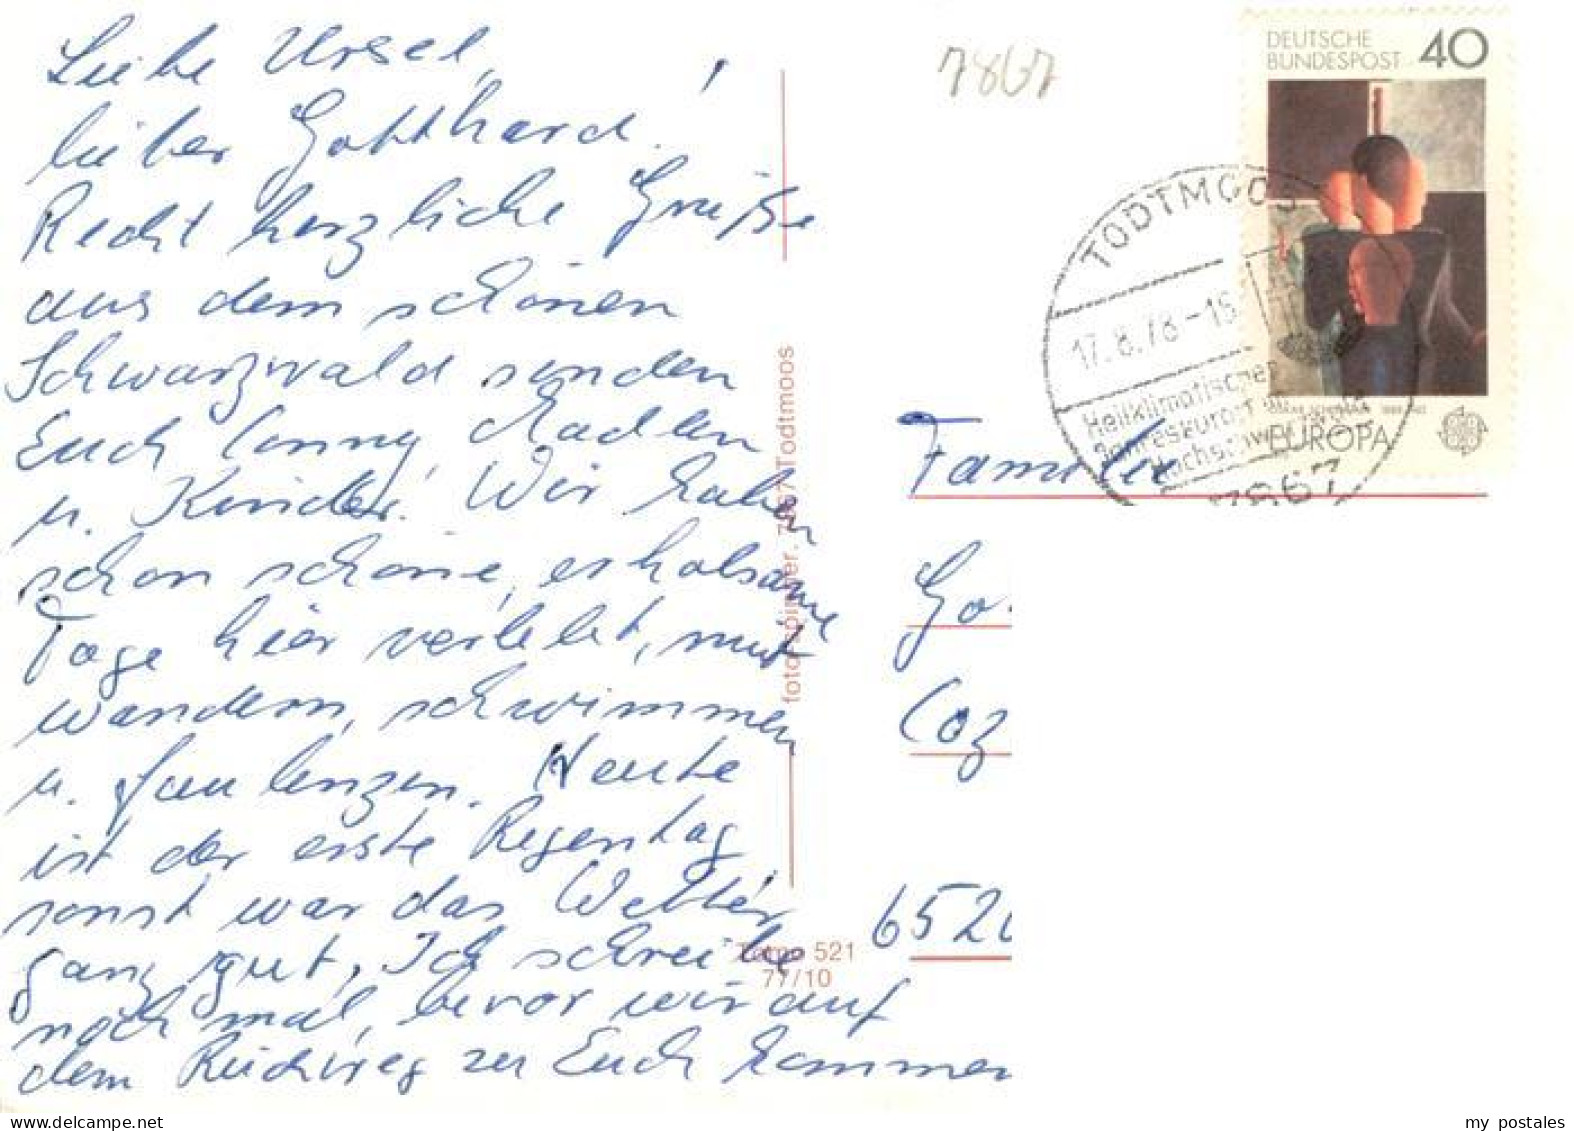 Liebe Ursel,
lieber Gotthard!
Recht herzliche Grüße
aus dem schönen
Schwarzwald senden
Euch Conny, Madlen
u. Kinder. Wir haben
schon schöne, erholsame
Tage hier verlebt, mit
wandern, schwimmen
u. faulenzen. Heute
ist der erste Regentag
sonst war das Wetter
ganz gut. Ich schreibe
noch mal, bevor wir auf
dem Rückweg zu Euch kommen
7867
DEUTSCHE
BUNDESPOST 40
EUROPA
TODTMOOS
17.8.78-15
Heilklimatischer
Jahreskurort im
Hochschwarzwald
7867
Familie
Go
Coz
652
foto-spinner. 7867 Todtmoos
521
77/10
my postales